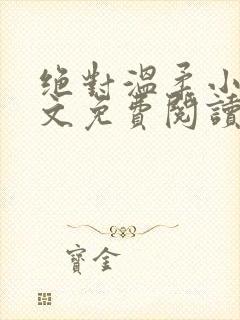 絕對溫柔小
文免費閱讀
寶金